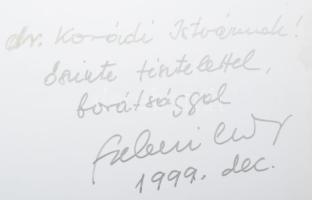 dr. Koródi Istvánnak!
őszinte tisztelettel,
barátsággal
1999. dec.